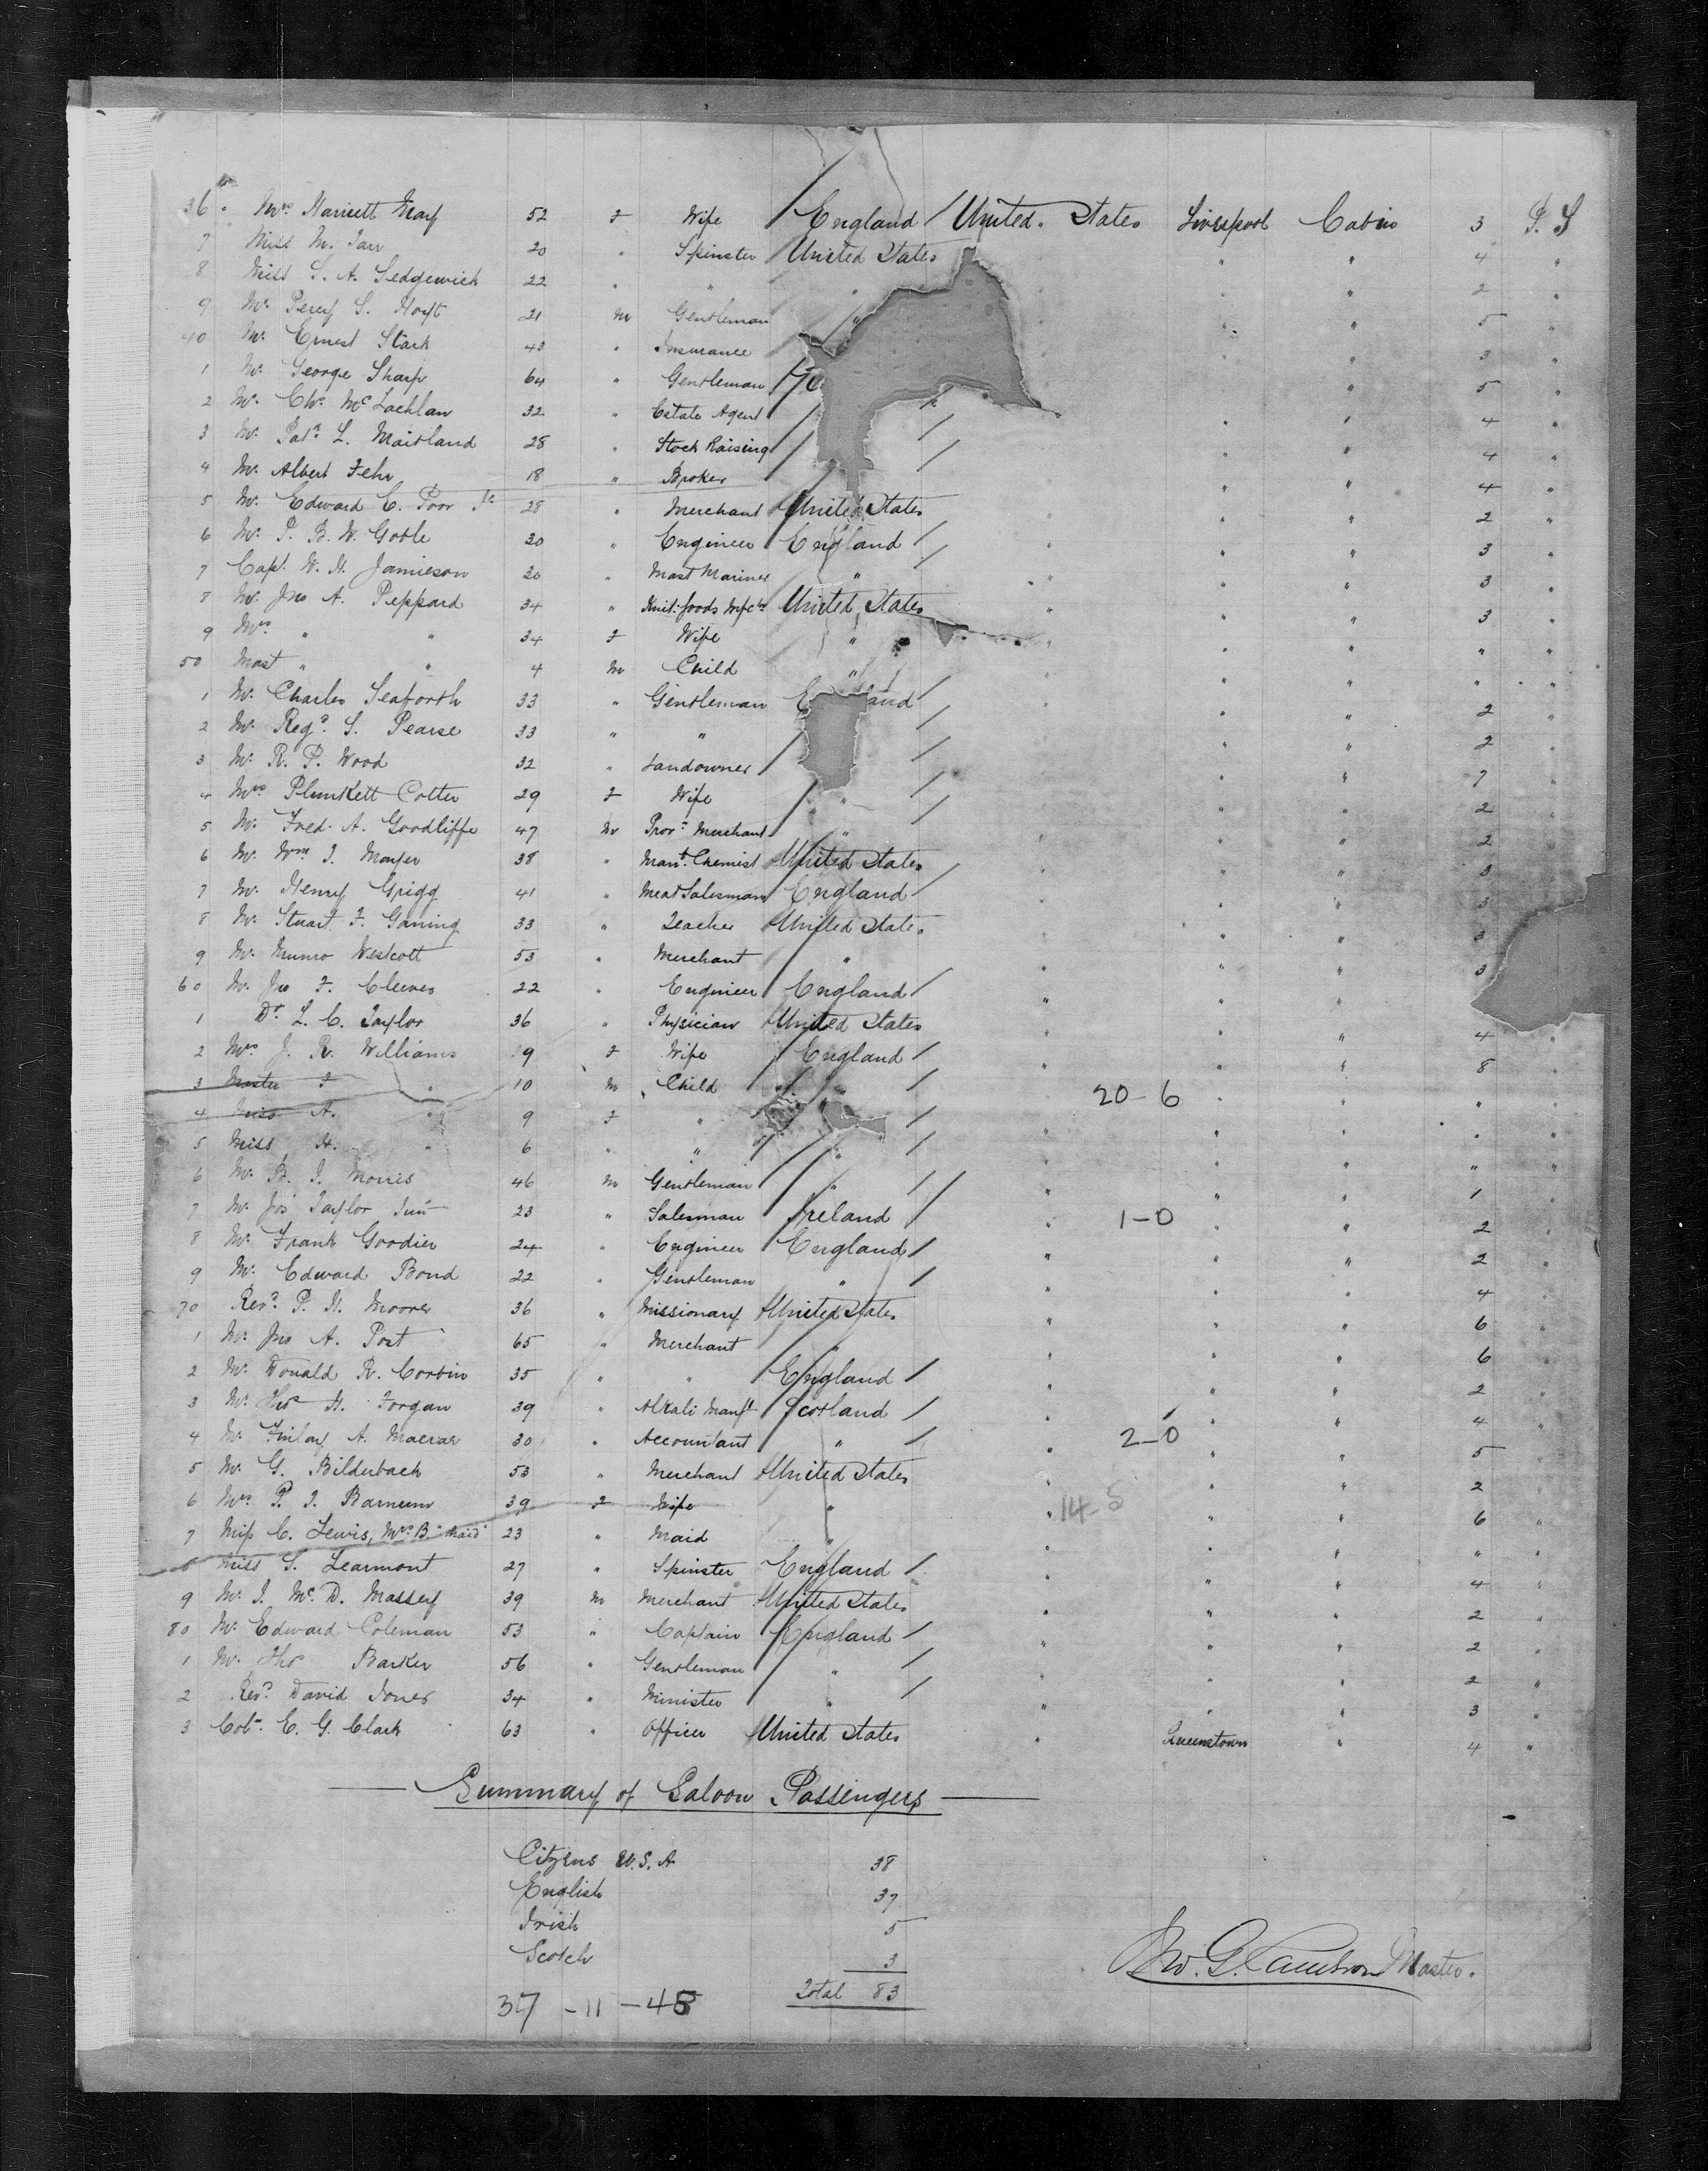 36 " Mrs Harriett May 52 F Wife England United States Liverpool Cabin 3 P. S
7 Miss M. Tarr 20 " Spinster United States " " 4 "
8 Miss S. A. Sedgewick 22 " " " " " 2 "
9 Mr Percy S. Hoyt 21 M Gentleman " " " 5 "
40 Mr Ernest Stark 43 " Insurance " 3 "
1 Mr George Sharp 64 " Gentleman " 5 "
2 Mr Chs McLachlan 32 " Estate Agent " " 4 "
3 Mr Patk L. Maitland 28 " Stock Raising " " 4 "
4 Mr Albert Fehr 18 " Broker " " 4 "
5 Mr Edward E. Poor Jr 28 " Merchant United States " " " 2 "
6 Mr P. B. W. Goble 20 " Engineer England " " " 3 "
7 Capt. W. H. Jamieson 20 " Mast Mariner " " " " 3 "
8 Mr Jno A. Peppard 34 " Knit. Goods Mfctr United States " " " 3 "
9 Mrs " " 34 F Wife " " " " " "
50 Mast " " 4 M Child " " " " " "
1 Mr Charles Seaforth 33 " Gentleman E and " " " 2 "
2 Mr Regd S. Pearse 33 " " " " " 2 "
3 Mr R. P. Wood 32 " Landowner " " 7 "
4 Mrs Plunkett Cotter 29 F Wife " " " 2 "
5 Mr Fred. A. Goodliffe 47 M Provn Merchant " " " " 2 "
6 Mr Wm J. Mayer 38 " Mant. Chemist United States " " " 3 "
7 Mr Henry Grigg 41 " Meat Salesman England " " " 3
8 Mr Stuart F. Ganing 33 " Teacher United States " " " 3
9 Mr Munro Westcott 53 " Merchant " " " " 3
60 Mr Jno F. Cleeves 22 " Engineer England " " "
1 Dr L. C. Taylor 36 " Physician United States " " " 4 "
2 Mrs J. R. Williams 9 F Wife England " " " 8 "
3 Master F " 10 M Child " 20-6 " " " "
4 Miss A. " 9 F " " " " " " "
5 Miss H. " 6 " " " " " " " "
6 Mr B. J. Morris 46 M Gentleman " " " " 1 "
7 Mr Jos Taylor Junr 23 " Salesman Ireland " 1-0 " " 2 "
8 Mr Frank Goodier 24 " Engineer England " " " 2 "
9 Mr Edward Bond 22 " Gentleman " " " " 4 "
70 Revd P. H. Moore 36 " Missionary United States " " " 6 "
1 Mr Jno A. Post 65 " Merchant " " " " 6 "
2 Mr Donald R. Corbin 35 " " England " " " 2 "
3 Mr Thos H. Forgan 39 " Alkali Manft Scotland " " " 4 "
4 Mr Finlay A. Macrae 30 " Accountant " " 2-0 " " 5 "
5 Mr G. Bilderback 53 " Merchant United States " " " 2 "
6 Mrs P. T. Barnum 39 F Wife " " 14-5 " " 6 "
7 Miss C. Lewis, Mrs B's Maid 23 " Maid " " " " " "
8 Miss S. Learmont 27 " Spinster England " " " 4 "
9 Mr J. McD. Massey 39 M Merchant United States " " " 2 "
80 Mr Edward Coleman 53 " Captain England " " " 2 "
1 Mr Thos Barker 56 " Gentleman " " " " 2 "
2 Revd David Jones 34 " Minister " " " " 3 "
3 Coln E. G. Clark 63 " Officer United States " Queenstown " 4 "
Summary of Saloon Passengers
Citizens U.S.A 38
English 37
Irish 5
Scotch 3
Total 83
Master.
37 - 11 - 45